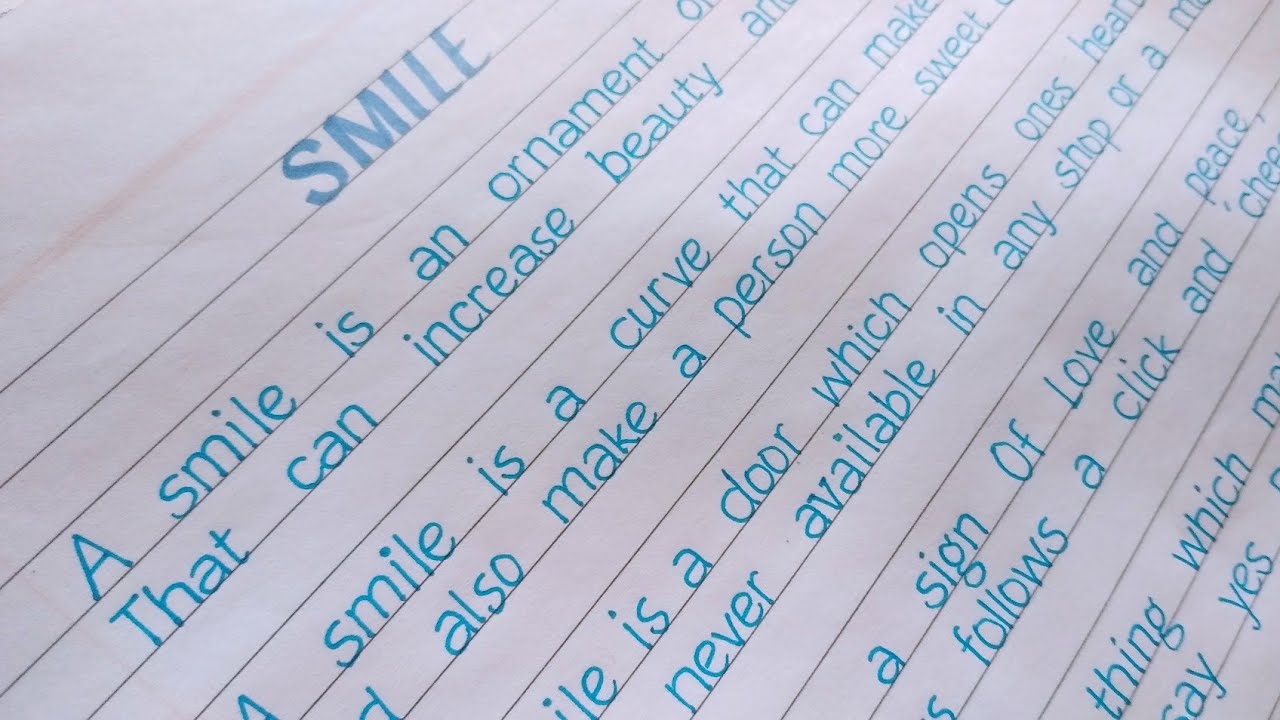 SMILE
A smile is an ornament
That can increase beauty
A smile is a curve that can make
also make a person more sweet
is a door which opens ones
never available in any shop or a
a sign Of Love and peace,
follows a click and
thing which
say yes